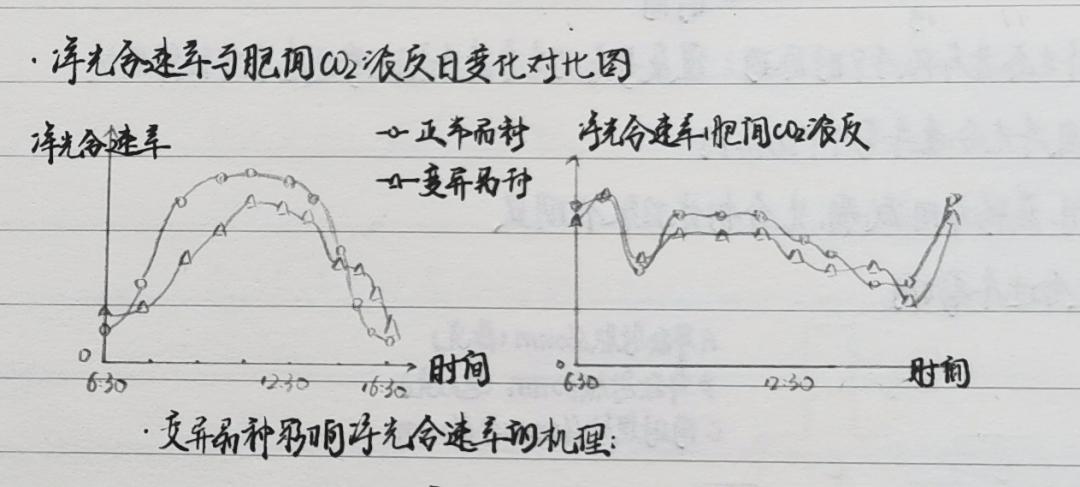 ·净光合速率与胞间CO2浓度日变化对比图
净光合速率
-o- 正常品种
-△- 变异品种
净光合速率/胞间CO2浓度
0
6:30
12:30
16:30
时间
0
6:30
12:30
时间
·变异品种影响净光合速率的机理: